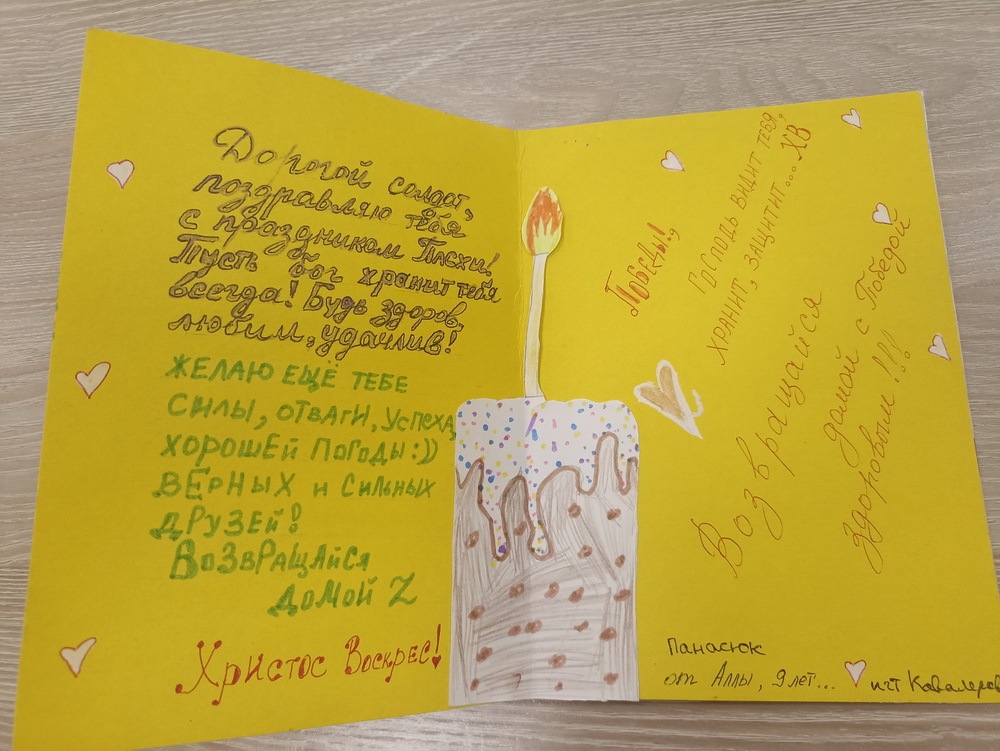 Дорогой солдат,
поздравляю тебя
с праздником Пасхи!
Пусть бог хранит тебя
всегда! Будь здоров,
любим, удачлив!
ЖЕЛАЮ ЕЩЁ ТЕБЕ
СИЛЫ, ОТВАГИ, УСПЕХА,
ХОРОШЕЙ ПОГОДЫ:))
ВЕРНЫХ И СИЛЬНЫХ
ДРУЗЕЙ!
ВОЗВРАЩАЙСЯ
ДОМОЙ Z
Христос Воскрес!
ПОБЕДЫ!
ГОСПОДЬ ВИДИТ ТЕБЯ,
ХРАНИТ, ЗАЩИТИТ... ХВ
Возвращайся
домой с Победой
здоровым!!!
Панасюк
от Аллы, 9 лет...
пгт Кавалеров